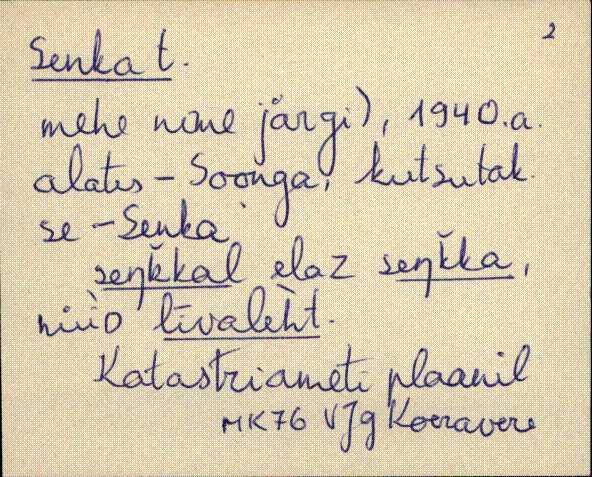 2
Senka t.
mehe nime järgi), 1940.a.
alates – Soonga, kutsutak
se – Senka
seŋ̆kkal elaz seŋ̆kka,
nüiD līvaleht.
Katastriameti plaanil
MK76 VJg Koeravere